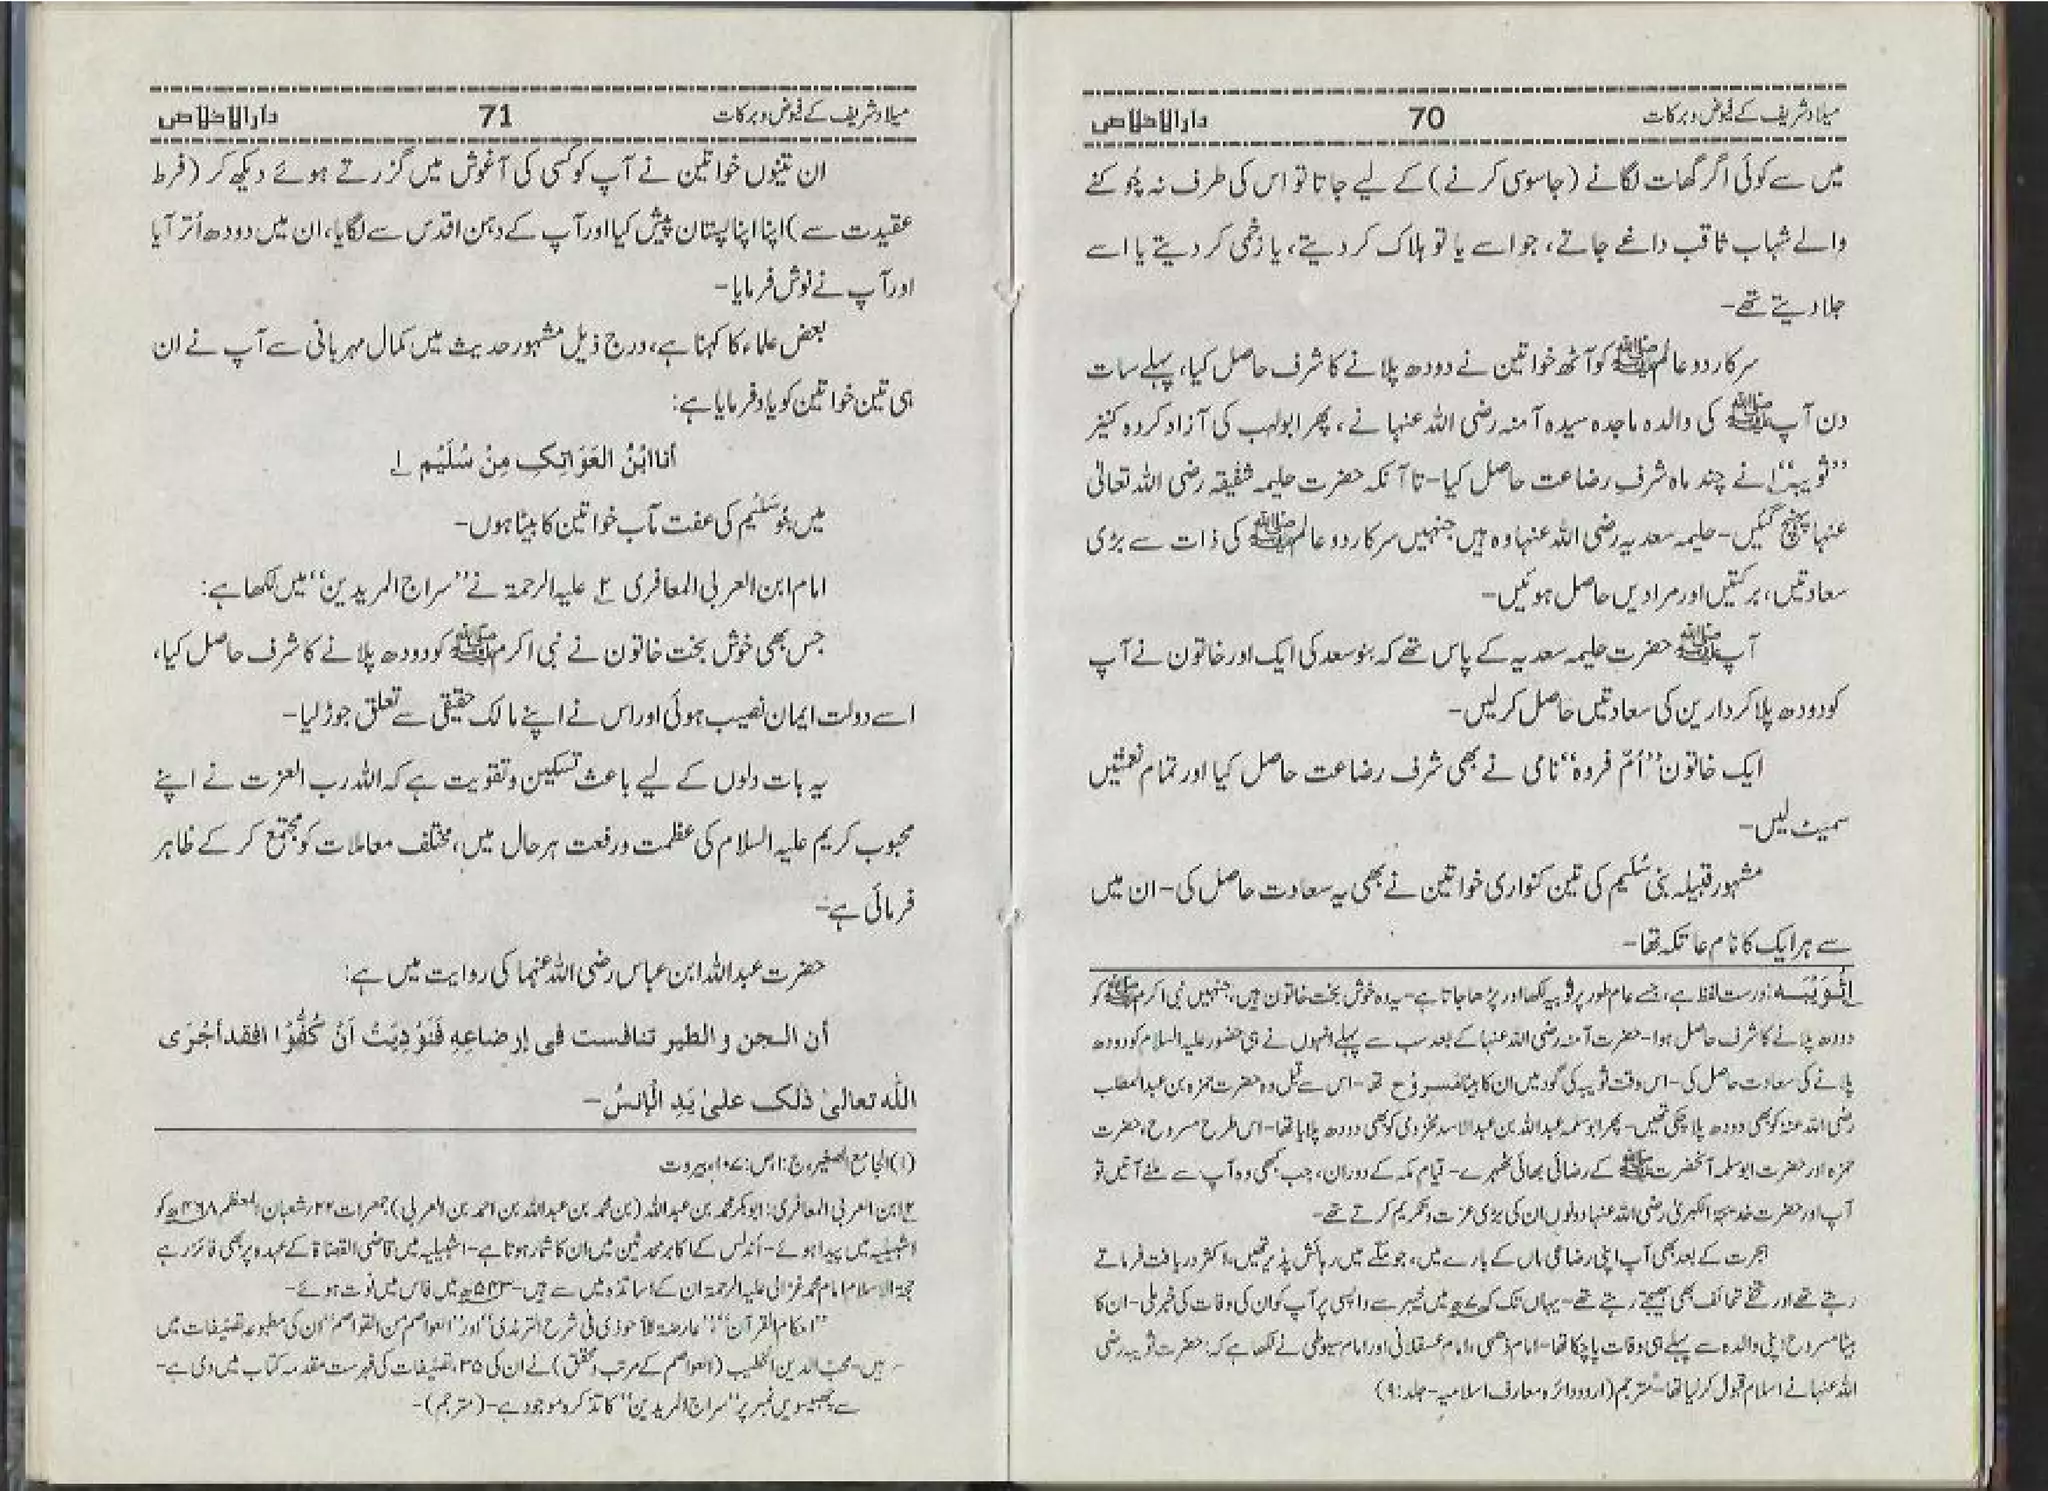 میلاد شریف کے فیوض و برکات 70 دارالاخلاص
میں سے کوئی اگر گھات لگانے (جاسوسی کرنے) کے لیے جاتا تو اس کی طرف نہ چُوکنے
والے شہاب ثاقب داغے جاتے، جو اسے یا تو ہلاک کر دیتے، یا زخمی کر دیتے یا اسے
جلا دیتے تھے-
سرکار دو عالم ﷺ کو آٹھ خواتین نے دودھ پلانے کا شرف حاصل کیا، پہلے سات
دن آپ ﷺ کی والدہ ماجدہ سیدہ آمنہ رضی اللہ عنہا نے، پھر ابولہب کی آزاد کردہ کنیز
”ثویبہ“ ۱ نے چند ماہ شرفِ رضاعت حاصل کیا-تا آنکہ حضرت حلیمہ شفیقہ رضی اللہ تعالیٰ
عنہا پہنچ گئیں- حلیمہ سعدیہ رضی اللہ عنہا وہ ہیں جنہیں سرکار دو عالم ﷺ کی ذات سے بڑی
سعادتیں، برکتیں اور مرادیں حاصل ہوئیں-
آپ ﷺ حضرت حلیمہ سعدیہ کے پاس تھے کہ بنو سعد کی ایک اور خاتون نے آپ
کو دودھ پلا کر دارین کی سعادتیں حاصل کر لیں-
ایک خاتون ”اُمّ فروہ“ نامی نے بھی شرف رضاعت حاصل کیا اور تمام نعمتیں
سمیٹ لیں-
مشہور قبیلہ بنی سُلَیم کی تین کنواری خواتین نے بھی یہ سعادت حاصل کی- ان میں
سے ہر ایک کا نام عاتکہ تھا-
۱ ثُوَیْبَہ: درست لفظ ہے، جسے عام طور پر ثوبیہ لکھا اور پڑھا جاتا ہے- یہ وہ خوش بخت خاتون ہیں، جنہیں نبی اکرم ﷺ کو
دودھ پلانے کا شرف حاصل ہوا- حضرت آمنہ رضی اللہ عنہا کے بعد سب سے پہلے انہوں نے ہی حضور علیہ السلام کو دودھ
پلانے کی سعادت حاصل کی- اس وقت ثویبہ کی گود میں ان کا بیٹا مَسرُوح تھا- اس سے قبل وہ حضرت حمزہ بن عبدالمطلب
رضی اللہ عنہ کو بھی دودھ پلا چکی تھیں- پھر ابو سلمہ عبداللہ بن عبدالاسد مخزومی کو بھی دودھ پلایا تھا- اس طرح مسروح، حضرت
حمزہ اور حضرت ابو سلمہ آنحضرت ﷺ کے رضائی بھائی ٹھہرے- قیام مکہ کے دوران، جب کبھی وہ آپ سے ملنے آتیں تو
آپ اور حضرت خدیجۃ الکبریٰ رضی اللہ عنہا دونوں ان کی بڑی عزت و تکریم کرتے تھے-
ہجرت کے بعد بھی آپ اپنی رضاعی ماں کے بارے میں، جو مکے میں رہائش پذیر تھیں، اکثر دریافت فرماتے
رہتے تھے اور تحفے تحائف بھی بھیجتے رہتے تھے- یہاں تک کہ ۷ھ میں خیبر سے واپسی پر آپ کو ان کی وفات کی خبر ملی- ان کا
بیٹا مسروح اپنی والدہ سے پہلے ہی وفات پا چکا تھا- امام ذھبی، امام عسقلانی اور امام سیوطی نے لکھا ہے کہ: حضرت ثویبہ رضی
اللہ عنہا نے اسلام قبول کر لیا تھا- مترجم (اردو دائرہ معارف اسلامیہ- جلد:۹)
میلاد شریف کے فیوض و برکات 71 دارالاخلاص
ان تینوں خواتین نے آپ کو کسی کی آغوش میں گزرتے ہوئے دیکھ کر (فرط
عقیدت سے) اپنا اپنا پستان پیش کیا اور آپ کے دہن اقدس سے لگایا، ان میں دودھ اُتر آیا
اور آپ نے نوش فرمایا-
بعض علماء کا کہنا ہے، درج ذیل مشہور حدیث میں کمال مہربانی سے آپ نے ان
ہی تین خواتین کو یاد فرمایا ہے:
أنا ابْنُ العَوَاتِکِ مِنْ سُلَیْم ۱
میں بنو سُلَیم کی عفت مآب خواتین کا بیٹا ہوں-
امام ابن العربی المعافری ۲ علیہ الرحمۃ نے ”سراج المریدین“ میں لکھا ہے:
جس بھی خوش بخت خاتون نے نبی اکرم ﷺ کو دودھ پلانے کا شرف حاصل کیا،
اسے دولت ایمان نصیب ہوئی اور اس نے اپنے مالک حقیقی سے تعلق جوڑ لیا-
یہ بات دلوں کے لیے باعث تسکین و تقویت ہے کہ اللہ رب العزت نے اپنے
محبوب کریم علیہ السلام کی عظمت و رفعت ہر حال میں، مختلف معاملات کو مجتمع کر کے ظاہر
فرمائی ہے-
حضرت عبداللہ ابن عباس رضی اللہ عنہما کی روایت میں ہے:
أن الـجن و الطیر تنافست فی إرضاعِهِ فَنُوْدِیَتْ اَنْ کُفُّوْا فقد أجْرَی
اللّٰه تعالیٰ ذٰلک علیٰ یَدِ الْإنسُ-
(۱) الجامع الصغیر، ج:۱، ص:۱۰۷، بیروت
۲ ابن العربی المعافری: ابو بکر محمد بن عبداللہ (بن محمد بن عبداللہ بن احمد بن العربی) جمعرات ۲۲ر شعبان المعظم ۴۶۸ھ کو
اشبیلیہ میں پیدا ہوئے- اُندلس کے اکابر محدثین میں ان کا شمار ہوتا ہے- اشبیلیہ میں قاضی القضاۃ کے عہدہ پر بھی فائز رہے
حجۃ الاسلام امام محمد غزالی علیہ الرحمۃ ان کے اساتذہ میں سے ہیں- ۵۴۳ھ میں فاس میں فوت ہوئے-
”احکام القرآن“، ”عارضۃ الأحوذی فی شرح الترمذی“ اور ”العواصم من القواصم“ ان کی مطبوعہ تصنیفات میں
ہیں- محبّ الدین الخطیب (العواصم کے مرتب و محقق) نے ان کی ۳۵، تصنیفات کی فہرست مقدمہ کتاب میں دی ہے-
سے چھبیسویں نمبر پر ”سراج المریدین“ کا تذکرہ موجود ہے-(مترجم)-